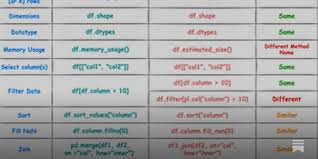 (or n) rows
Dimensions df.shape df.shape Same
Datatype df.dtypes df.dtypes Same
Memory Usage df.memory_usage() df.estimated_size() Different Method
Name
Select column(s) df[["col1", "col2"]] df[["col1", "col2"]] Same
Filter Data df[df.column > 10] df[df.column > 10] Same
df.filter(pl.col("column") > 10) Different
Sort df.sort_values("column") df.sort("column") Similar
Fill NaN df.column.fillna(0) df.column.fill_nan(0) Similar
Join pd.merge(df1, df2, on ="col", how="inner") df1.join(df2, on="col", how="inner") Similar